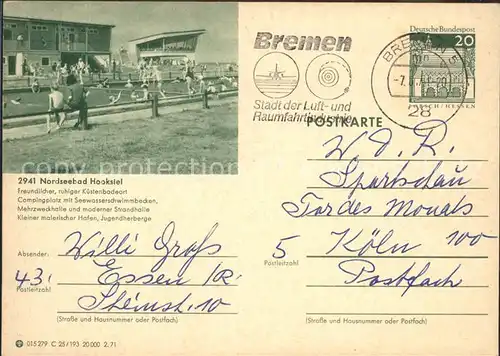 Deutsche Bundespost
20
Bremen
28
Stadt der Luft- und
Raumfahrtindustrie
POSTKARTE
2941 Nordseebad Hooksiel
Freundlicher, ruhiger Küstenbadeort
Campingplatz mit Seewasserschwimmbecken,
Mehrzweckhalle und moderner Strandhalle
Kleiner malerischer Hafen, Jugendherberge
W. D. R.
Sportschau
Tor des Monats
5 Köln 100
Postleitzahl
Postfach
(Straße und Hausnummer oder Postfach)
Absender: Willi Groß
43 Essen
Postleitzahl
Steinstr. 10
(Straße und Hausnummer oder Postfach)
015 279 C 25/193 20 000 2.71